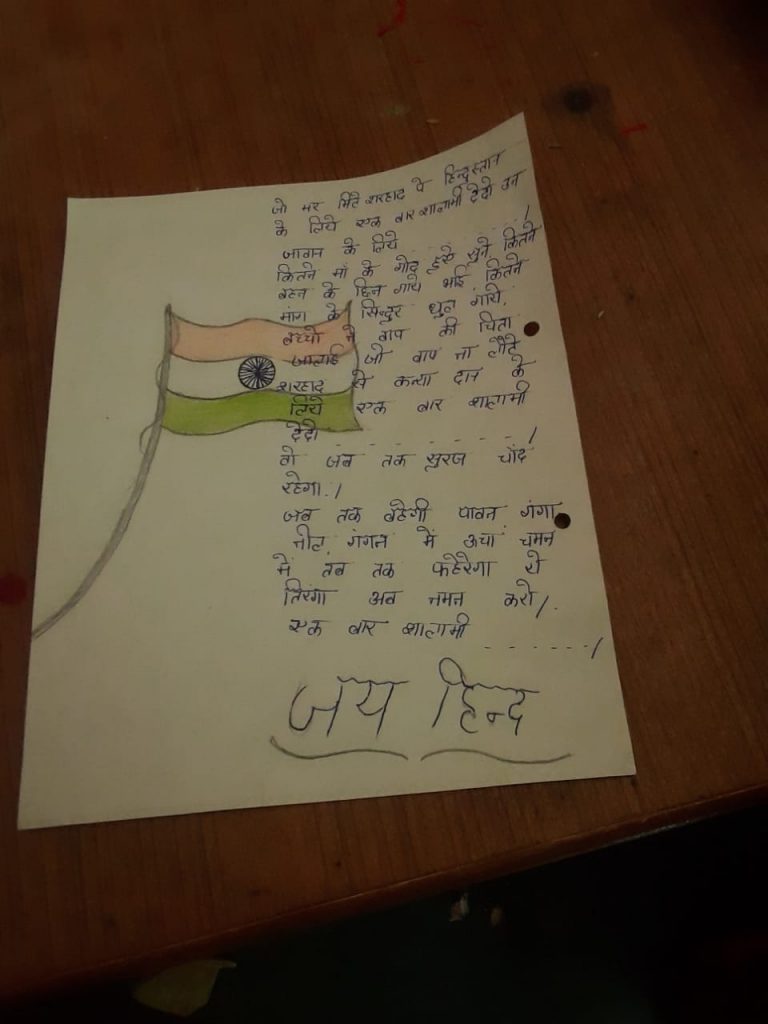 जो मर मिटे शरहाद पे हिन्दुस्तान
के लिये एक बार शालामी देदो उन
जावान के लिये . . . . . . . . /
कितने माँ के गोद हुऐ सुने कितने
बहन के छिन गाये भाई कितने
मांग के सिन्दुर धुल गाये,
बच्चो ने बाप की चिता
जालाई जो बाप ना लौटे
शरहाद से कन्या दान के
लिये एक बार शालामी
देदो - - - - - - - - - /
वो जब तक सुरज चाँद
रहेगा. /
जब तक बहेगी पावन गंगा
नील गंगन में ऊचा चमन
में तब तक फहेरेगा ये
तिरंगा अब नमन करो /.
एक बार शालामी
- - - - - - /
जय हिन्द